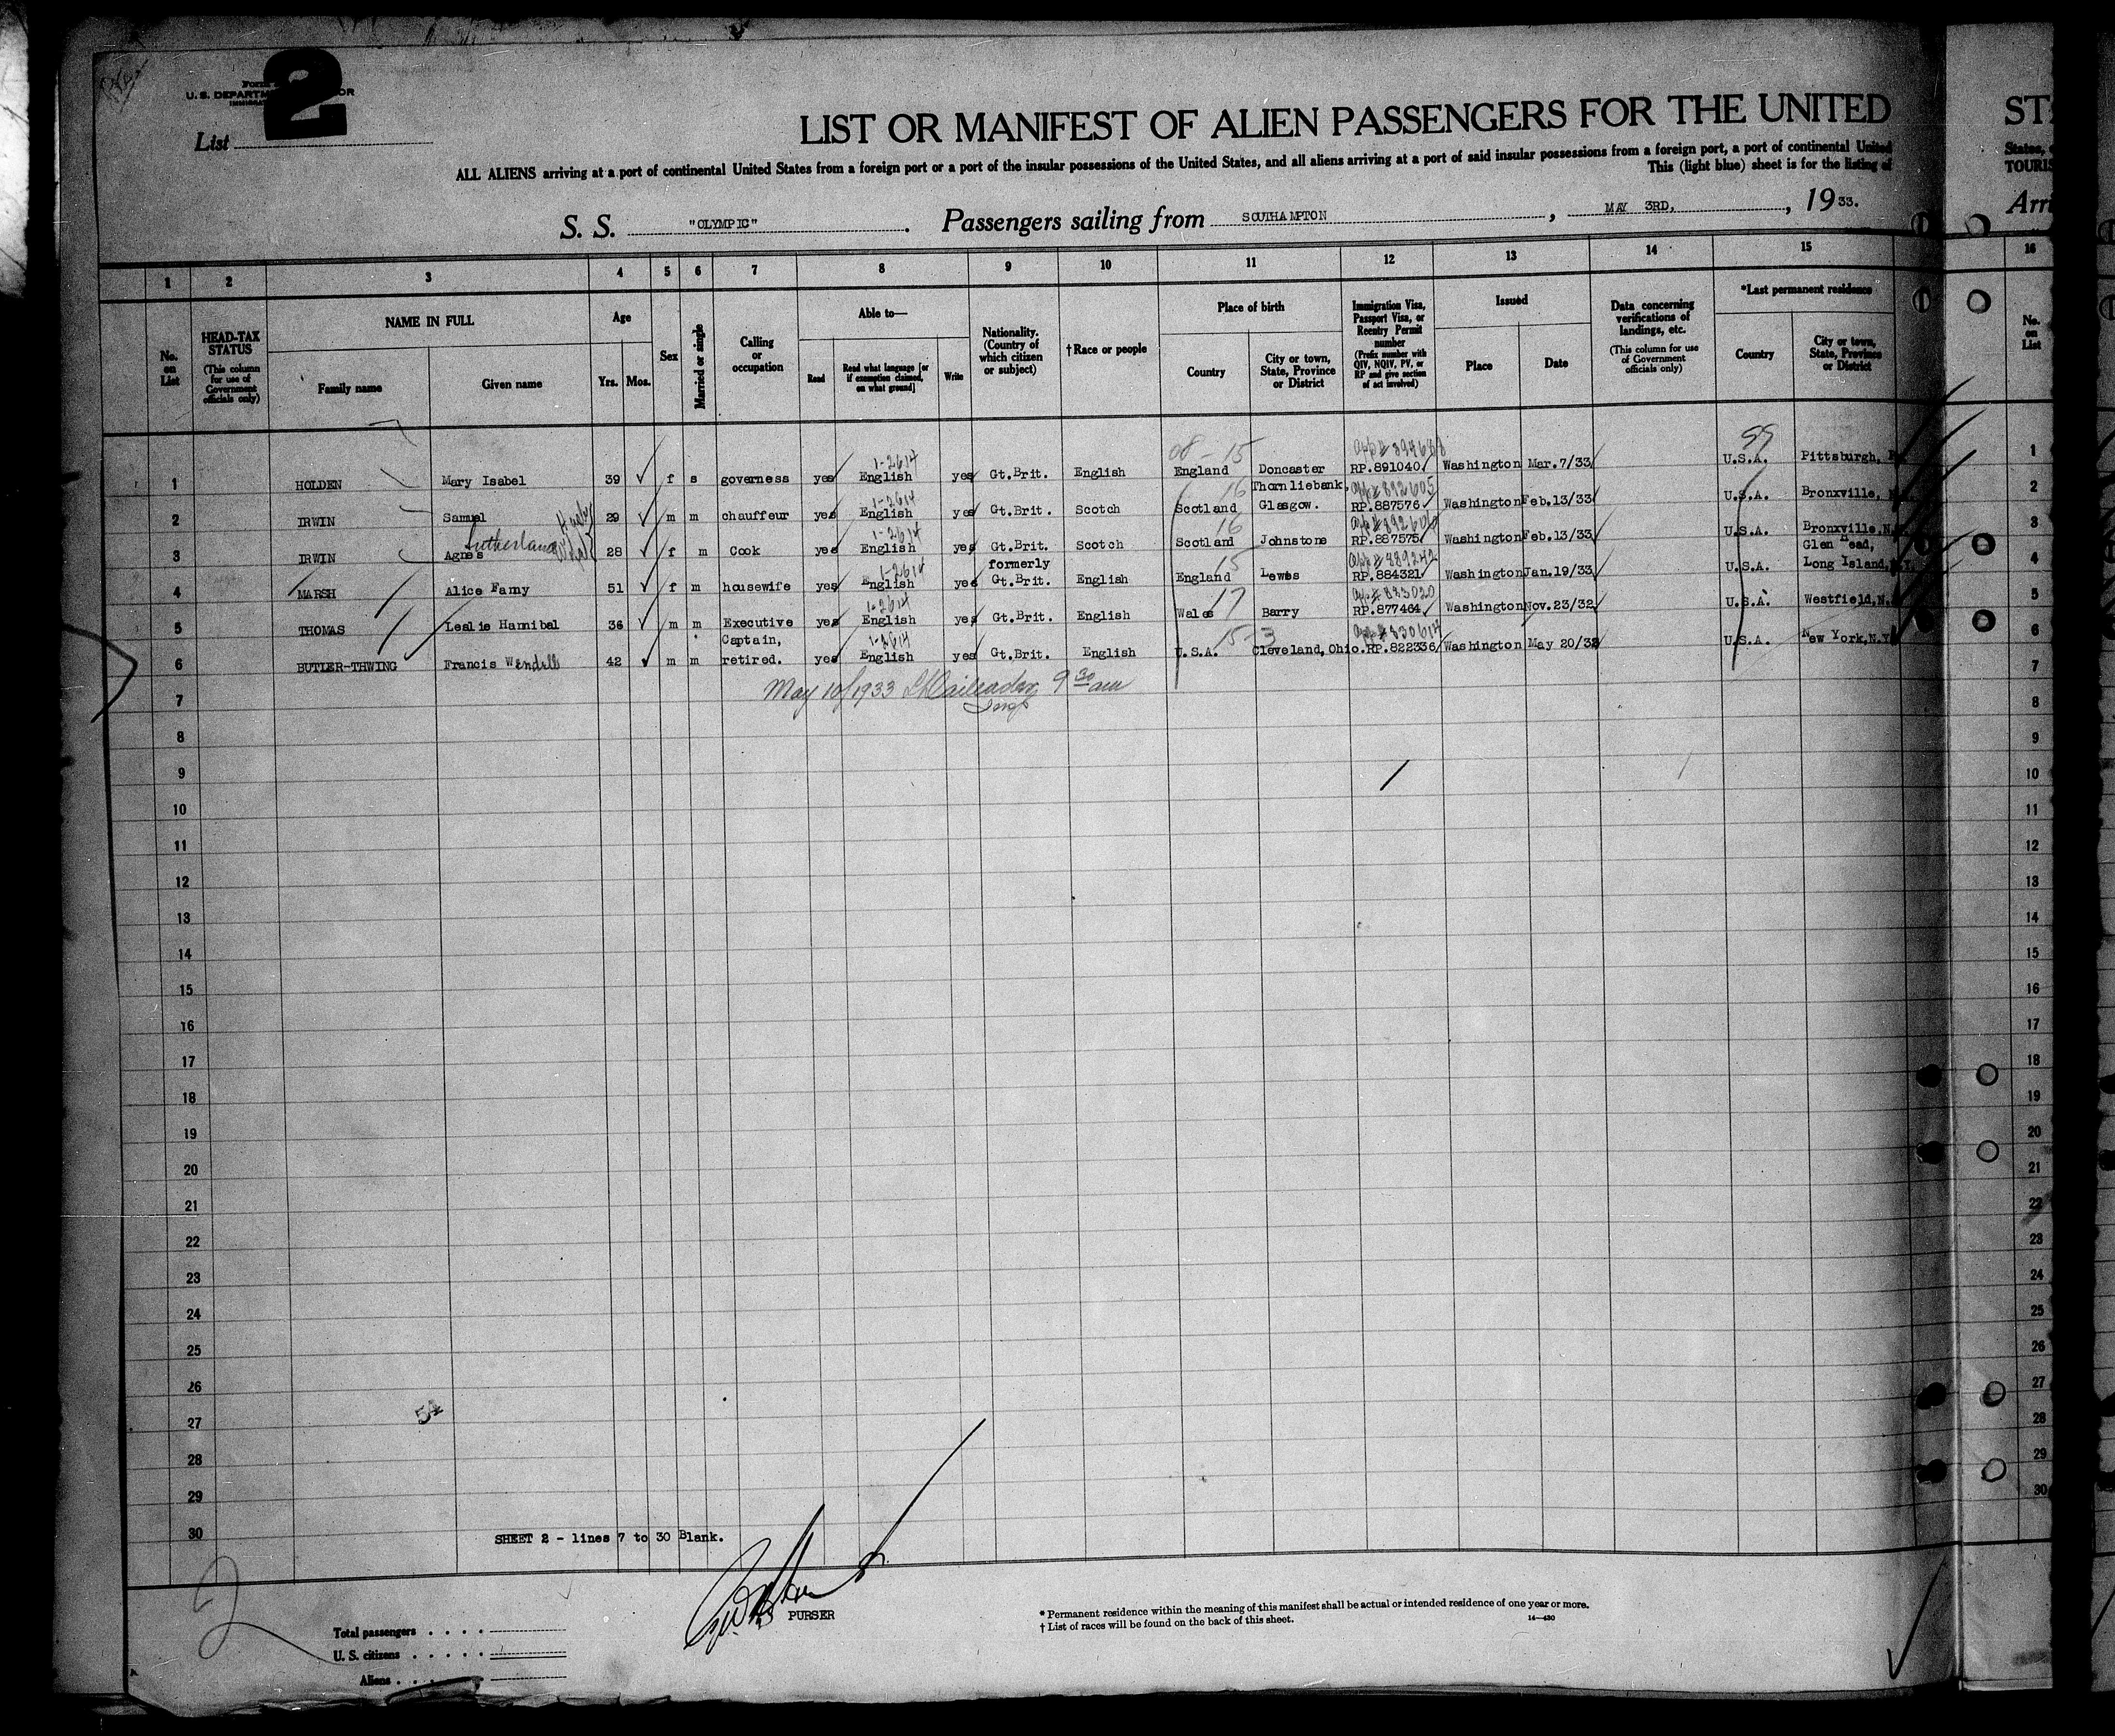 2
U. S. DEPARTM
OR
List
LIST OR MANIFEST OF ALIEN PASSENGERS FOR THE UNITED
ALL ALIENS arriving at a port of continental United States from a foreign port or a port of the insular possessions of the United States, and all aliens arriving at a port of said insular possessions from a foreign port, a port of continental United
This (light blue) sheet is for the listing of
S. S. "OLYMPIC". Passengers sailing from SOUTHAMPTON, MAY 3RD, , 1933.
STA
States,
TOURIS
Arri
1 2 3 4 5 6 7 8 9 10 11 12 13 14 15 16
No. on List
HEAD-TAX STATUS (This column for use of Government officials only)
NAME IN FULL
Family name Given name
Age
Yrs. Mos.
Sex
Married or single
Calling or occupation
Able to—
Read Read what language [or if exemption claimed, on what ground] Write
Nationality. (Country of which citizen or subject)
†Race or people
Place of birth
Country City or town, State, Province or District
Immigration Visa, Passport Visa, or Reentry Permit number (Prefix number with QIV, NQIV, PV, or RP and give section of act involved)
Issued
Place Date
Data concerning verifications of landings, etc. (This column for use of Government officials only)
*Last permanent residence
Country City or town, State, Province or District
No. on List
08-15 99
1-2614
1 HOLDEN Mary Isabel 39 f s governess yes English yes Gt.Brit. English England Doncaster RP.891040 Washington Mar.7/33 U.S.A. Pittsburgh, 1
1-2614 16 Thornliebank, 892605
2 IRWIN Samuel 29 m m chauffeur yes English yes Gt.Brit. Scotch Scotland Glasgow. RP.887576 Washington Feb.13/33 U.S.A. Bronxville, 2
Sutherland 1-2614 16
3 IRWIN Agnes 28 f m Cook yes English yes Gt.Brit. Scotch Scotland Johnstone RP.887575 Washington Feb.13/33 U.S.A. Bronxville, N. 3
1-2614 formerly 15 889242 Glen Head,
4 MARSH Alice Fanny 51 f m housewife yes English yes Gt.Brit. English England Lewes RP.884321 Washington Jan.19/33 U.S.A. Long Island, N.Y. 4
1-2614 17 883020
5 THOMAS Leslie Hannibal 36 m m Executive yes English yes Gt.Brit. English Wales Barry RP.877464 Washington Nov.23/32 U.S.A. Westfield, N. 5
Captain, 1-2614 15-3 830614
6 BUTLER-THWING Francis Wendell 42 m m retired. yes English yes Gt.Brit. English U.S.A. Cleveland, Ohio. RP.822336 Washington May 20/32 U.S.A. New York, N.Y. 6
May 10/1933 9 30 am
7 7
8 8
9 9
10 10
11 11
12 12
13 13
14 14
15 15
16 16
17 17
18 18
19 19
20 20
21 21
22 22
23 23
24 24
25 25
26 26
54
27 27
28 28
29 29
30 30
SHEET 2 - lines 7 to 30 Blank.
2
PURSER
* Permanent residence within the meaning of this manifest shall be actual or intended residence of one year or more.
† List of races will be found on the back of this sheet.
14—430
Total passengers
U. S. citizens
Aliens